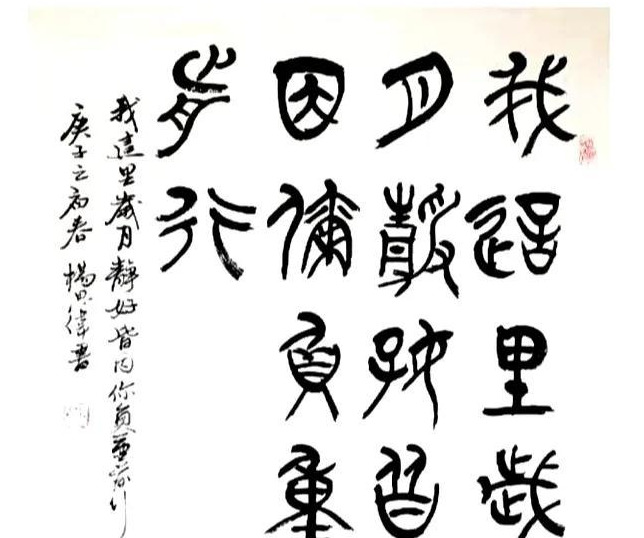 我這里歲
月靜好皆
因儞負重
前行
我這里歲月靜好皆因你負重前行
庚子之初春 楊書